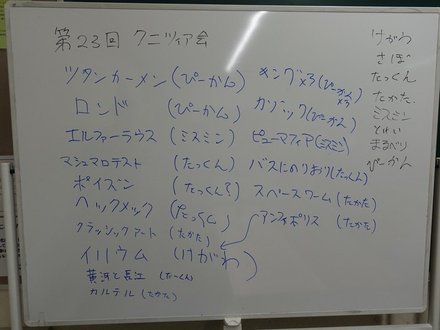 第23回 クニツィア会
ツタンカーメン(ぴーかん)
ロンド (ぴーかん)
エルファーラウス(ミスミン)
マシュマロテスト (たっくん)
ポイズン (たっくん?)
ヘックメック (たっくん)
クラッシックアート (たかた)
イリウム (けがわ)
黄浜と長江 (たーくん)
カルテル (たかた)
キング×3(ぴーかん×3)
カゾック(ぴーかん)
ピューマフィア(ミスミン)
バスにのりおり(たっくん)
スペースワーム(たかた)
アンフィポリス (たかた)
けがわ
さぼ
たっくん
たかた
ミスミン
とれい
まるべり
ぴーかん